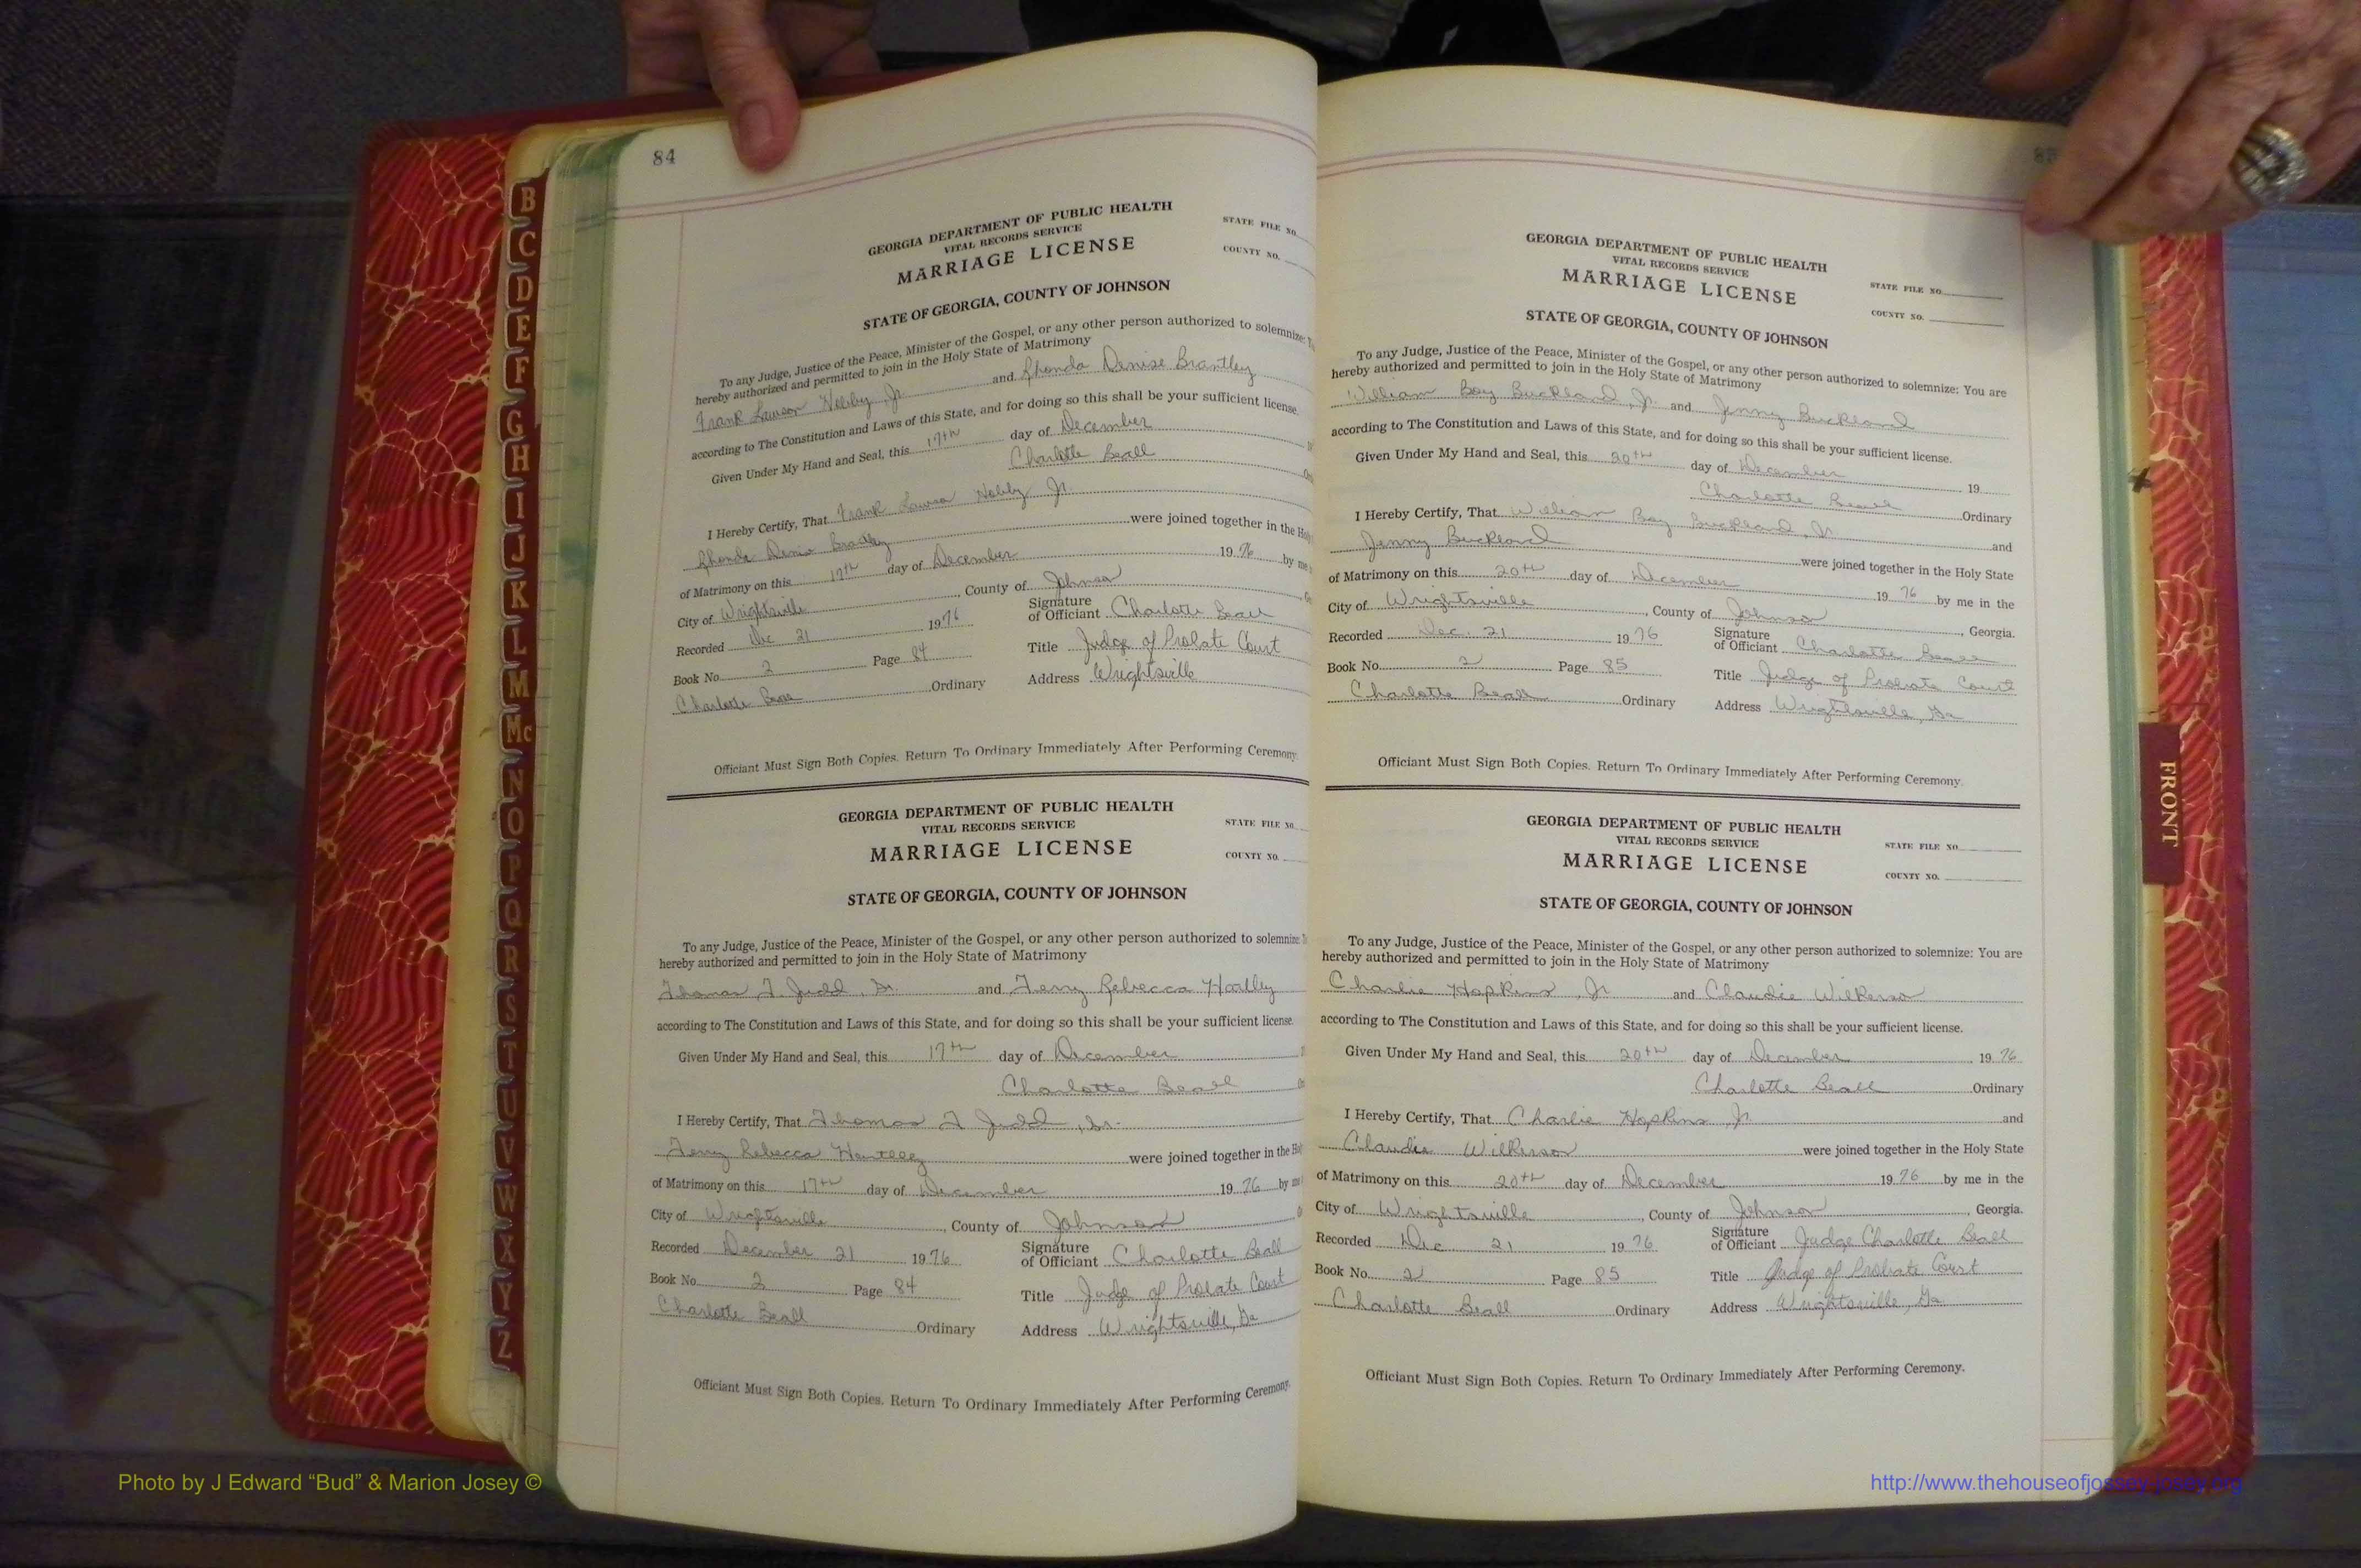 84
GEORGIA DEPARTMENT OF PUBLIC HEALTH
VITAL RECORDS SERVICE
MARRIAGE LICENSE
STATE FILE NO.
COUNTY NO.
STATE OF GEORGIA, COUNTY OF JOHNSON
To any Judge, Justice of the Peace, Minister of the Gospel, or any other person authorized to solemnize:
hereby authorized and permitted to join in the Holy State of Matrimony
Frank Lawson Hobby Jr. and Rhonda Denise Brantley
according to The Constitution and Laws of this State, and for doing so this shall be your sufficient license.
Given Under My Hand and Seal, this 17th day of December
Charlotte Beall
I Hereby Certify, That Frank Lawson Hobby Jr.
Rhonda Denise Brantley were joined together in the
of Matrimony on this 17th day of December 1976 by me
City of Wrightsville, County of Johnson
Recorded Dec 21 1976 Signature of Officiant Charlotte Beall
Book No. 2 Page 84 Title Judge of Probate Court
Charlotte Beall Ordinary Address Wrightsville
Officiant Must Sign Both Copies. Return To Ordinary Immediately After Performing Ceremony.
GEORGIA DEPARTMENT OF PUBLIC HEALTH
VITAL RECORDS SERVICE
MARRIAGE LICENSE
STATE FILE NO.
COUNTY NO.
STATE OF GEORGIA, COUNTY OF JOHNSON
To any Judge, Justice of the Peace, Minister of the Gospel, or any other person authorized to solemnize:
hereby authorized and permitted to join in the Holy State of Matrimony
Thomas J. Judd, Sr. and Terry Rebecca Hartley
according to The Constitution and Laws of this State, and for doing so this shall be your sufficient license.
Given Under My Hand and Seal, this 17th day of December
Charlotte Beall
I Hereby Certify, That Thomas J Judd, Sr.
Terry Rebecca Hartley were joined together in the
of Matrimony on this 17th day of December 1976 by me
City of Wrightsville, County of Johnson
Recorded December 21 1976 Signature of Officiant Charlotte Beall
Book No. 2 Page 84 Title Judge of Probate Court
Charlotte Beall Ordinary Address Wrightsville, Ga
Officiant Must Sign Both Copies. Return To Ordinary Immediately After Performing Ceremony.
GEORGIA DEPARTMENT OF PUBLIC HEALTH
VITAL RECORDS SERVICE
MARRIAGE LICENSE
STATE FILE NO.
COUNTY NO.
STATE OF GEORGIA, COUNTY OF JOHNSON
To any Judge, Justice of the Peace, Minister of the Gospel, or any other person authorized to solemnize: You are
hereby authorized and permitted to join in the Holy State of Matrimony
William Boy Buckland, Jr. and Jenny Buckland
according to The Constitution and Laws of this State, and for doing so this shall be your sufficient license.
Given Under My Hand and Seal, this 20th day of December 19
Charlotte Beall Ordinary
I Hereby Certify, That William Boy Buckland, Jr. and
Jenny Buckland were joined together in the Holy State
of Matrimony on this 20th day of December 1976 by me in the
City of Wrightsville, County of Johnson, Georgia.
Recorded Dec. 21 1976 Signature of Officiant Charlotte Beall
Book No. 2 Page 85 Title Judge of Probate Court
Charlotte Beall Ordinary Address Wrightsville, Ga
Officiant Must Sign Both Copies. Return To Ordinary Immediately After Performing Ceremony.
GEORGIA DEPARTMENT OF PUBLIC HEALTH
VITAL RECORDS SERVICE
MARRIAGE LICENSE
STATE FILE NO.
COUNTY NO.
STATE OF GEORGIA, COUNTY OF JOHNSON
To any Judge, Justice of the Peace, Minister of the Gospel, or any other person authorized to solemnize: You are
hereby authorized and permitted to join in the Holy State of Matrimony
Charlie Hopkins, Jr and Claudie Wilkerson
according to The Constitution and Laws of this State, and for doing so this shall be your sufficient license.
Given Under My Hand and Seal, this 20th day of December 1976
Charlotte Beall Ordinary
I Hereby Certify, That Charlie Hopkins, Jr. and
Claudie Wilkerson were joined together in the Holy State
of Matrimony on this 20th day of December 1976 by me in the
City of Wrightsville, County of Johnson, Georgia.
Recorded Dec 21 1976 Signature of Officiant Judge Charlotte Beall
Book No. 2 Page 85 Title Judge of Probate Court
Charlotte Beall Ordinary Address Wrightsville, Ga
Officiant Must Sign Both Copies. Return To Ordinary Immediately After Performing Ceremony.
B
C
D
E
F
G
H
I
J
K
L
M
Mc
N
O
P
Q
R
S
T
U
V
W
X
Y
Z
FRONT
Photo by J Edward “Bud” & Marion Josey ©
http://www.thehouseofjossey-josey.org